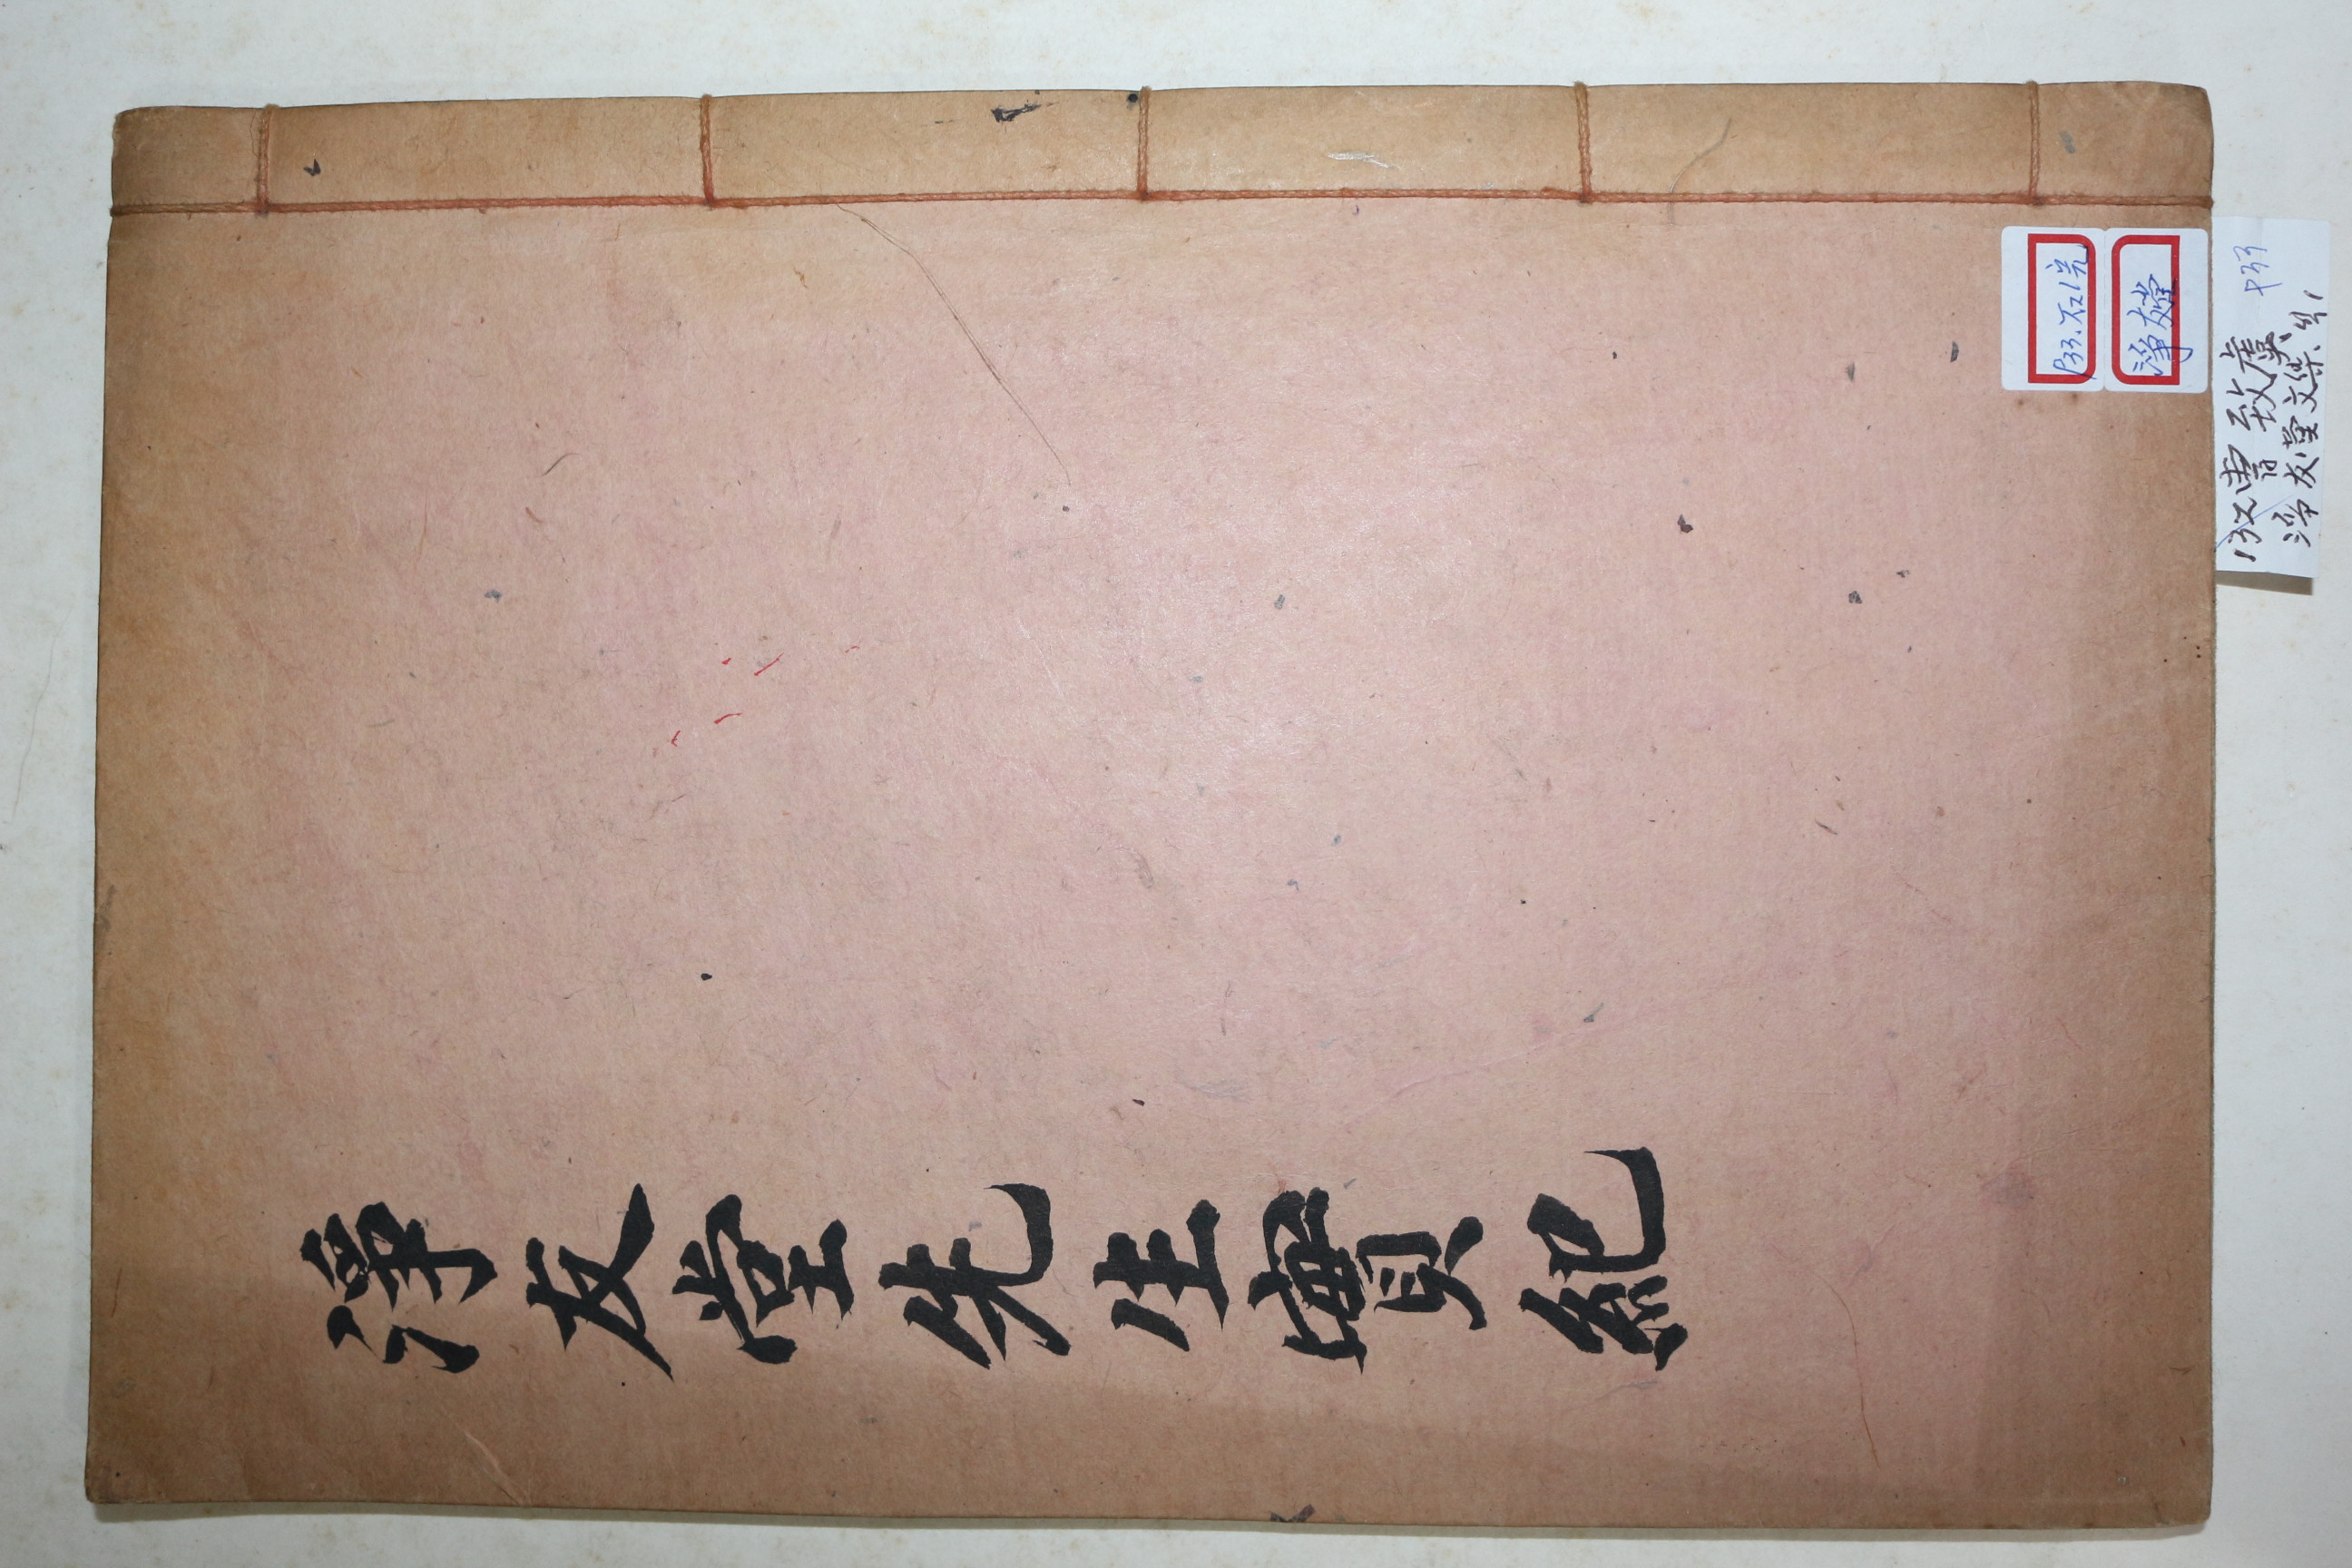 淨友堂先生實紀
P33.石1完
淨友堂
132 曺致虞 P33
淨友堂文集